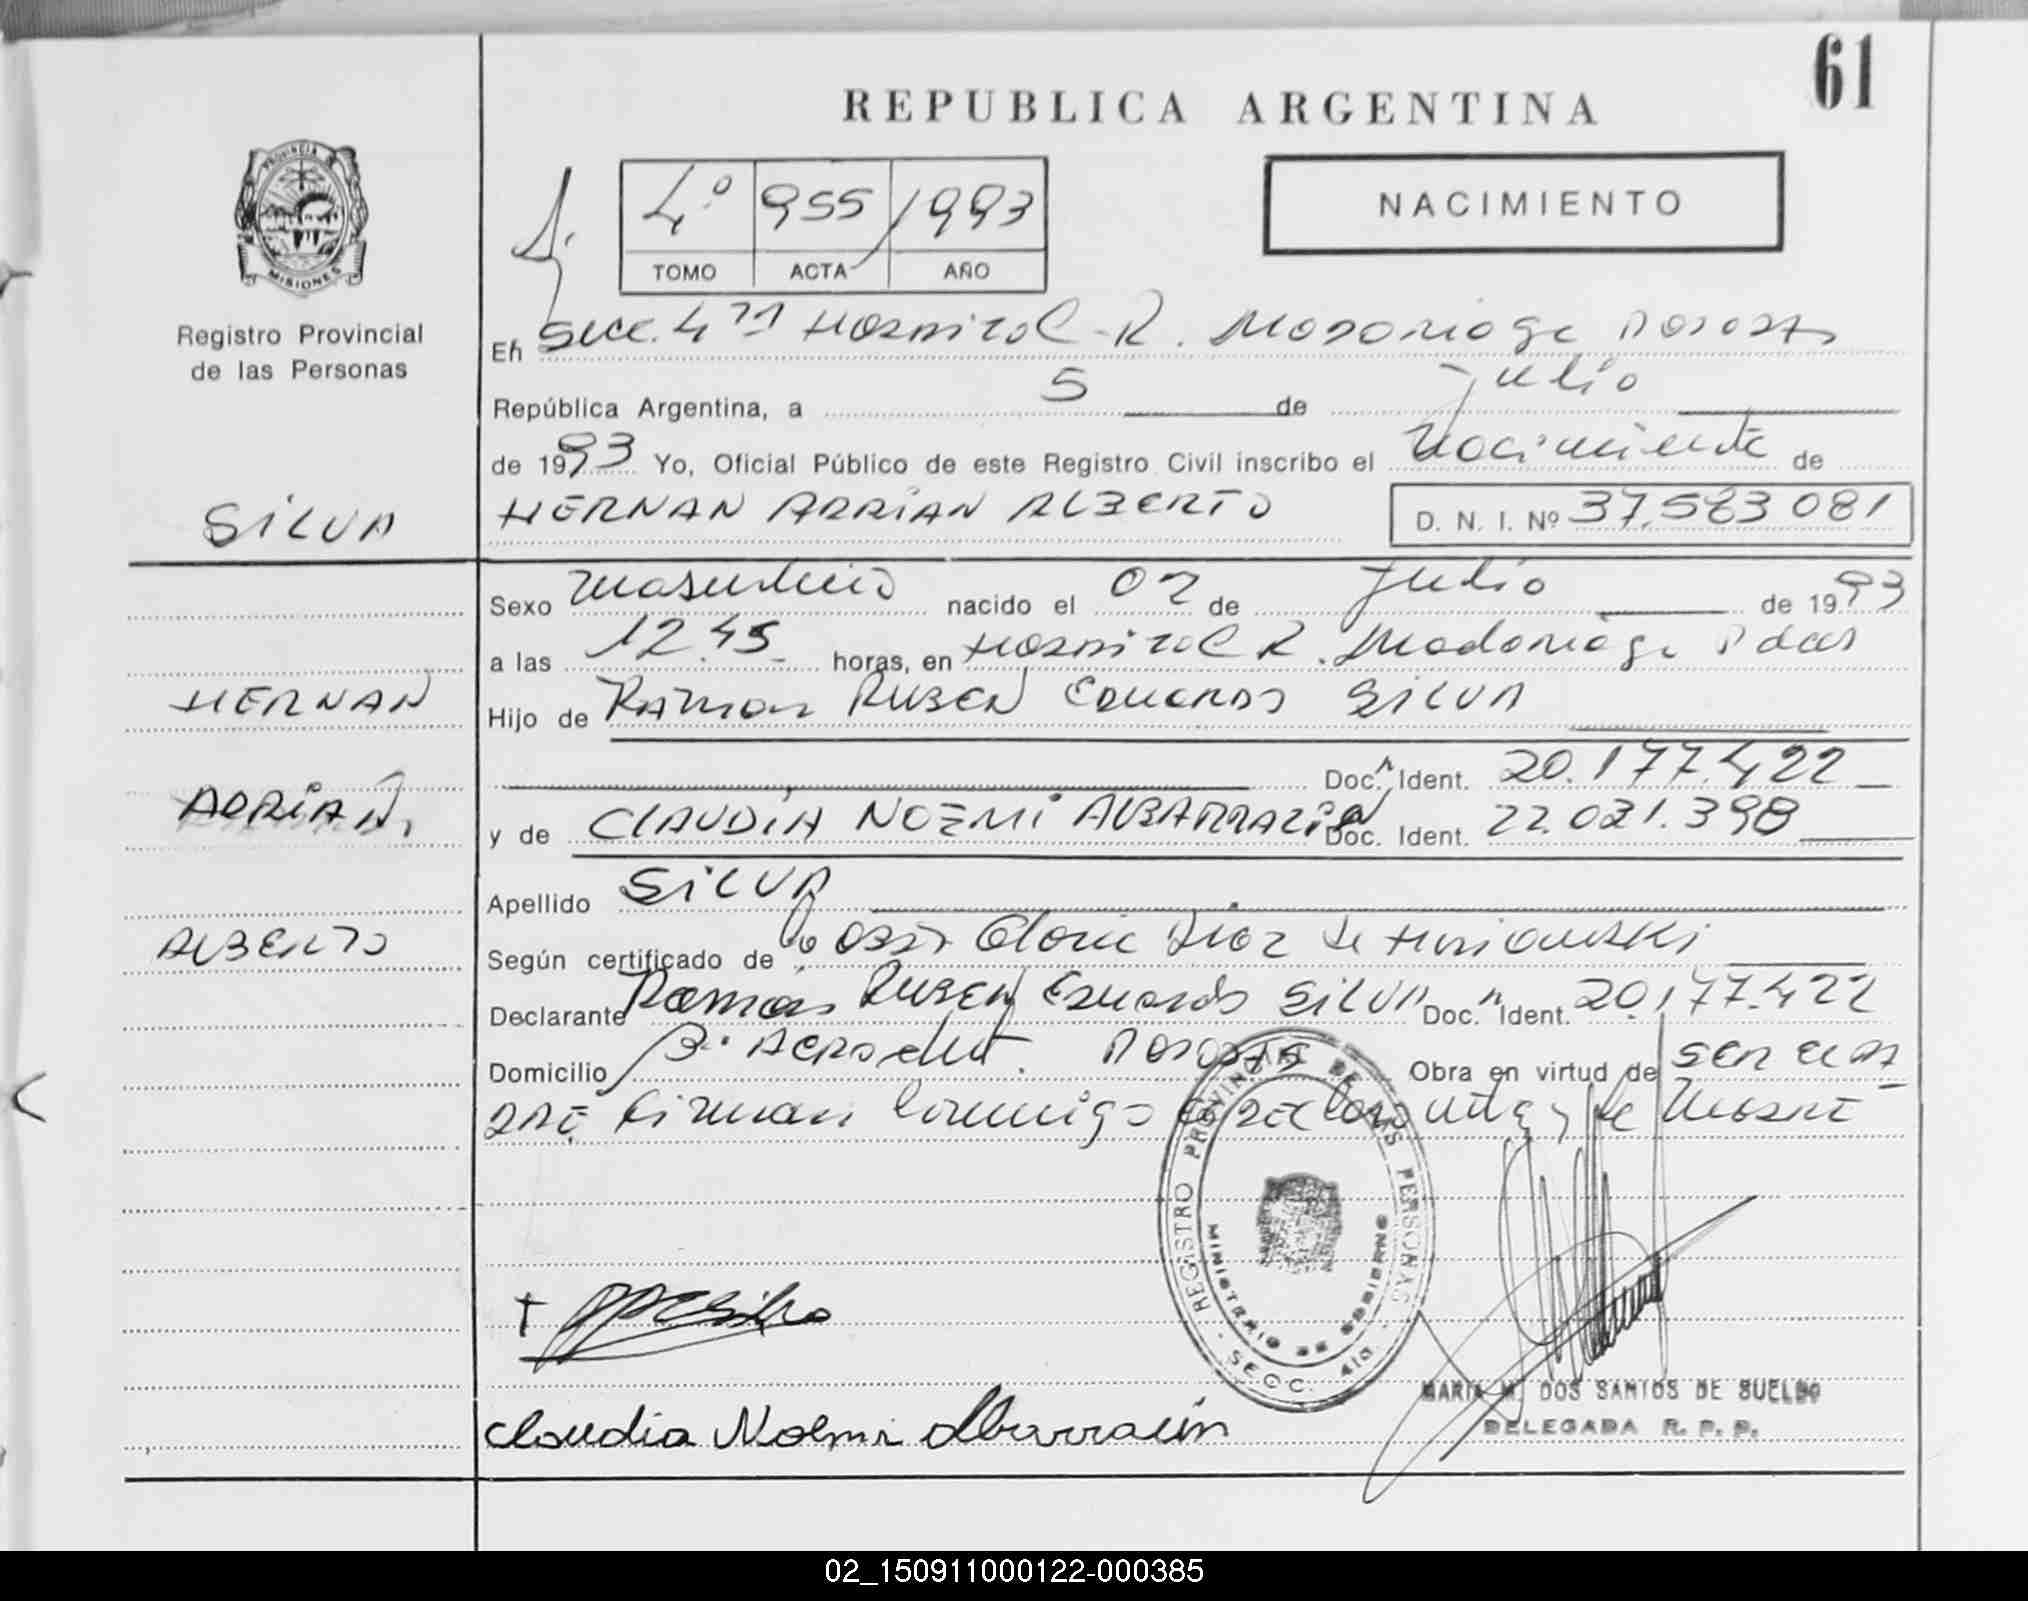 61
REPUBLICA ARGENTINA
PROVINCIA DE
MISIONES
Registro Provincial
de las Personas
4º 955 / 1993
TOMO ACTA AÑO
NACIMIENTO
En Secc. 4ta Hospital R. Madariaga Posadas
República Argentina, a 5 de Julio
de 1993 Yo, Oficial Público de este Registro Civil inscribo el Nacimiento de
SILVA
HERNAN ADRIAN ALBERTO D. N. I. Nº 37.583 081
Sexo Masculino nacido el 02 de Julio de 1993
a las 12.45 horas, en Hospital R. Madariaga Pdas
HERNAN
Hijo de Ramon RUBEN EDUARDO SILVA
Doc. Ident. 20.177.422
ADRIAN
y de CLAUDIA NOEMI ALBARRACIN Doc. Ident. 22.021.398
Apellido SILVA
ALBERTO
Según certificado de Obst. Gloria Diaz de
Declarante Ramon RUBEN Eduardo SILVA Doc. Ident. 20.177.422
Domicilio Bº Aeroclub. Posadas Obra en virtud de ser el pa
dre Firman conmigo el declarante y la Madre
REGISTRO PROVINCIAL DE LAS PERSONAS
MINISTERIO DE GOBIERNO
SECC. 4ta.
Claudia Noemi Albarracín
MARIA M. DOS SANTOS DE SUELDO
DELEGADA R. P. P.
02_150911000122-000385